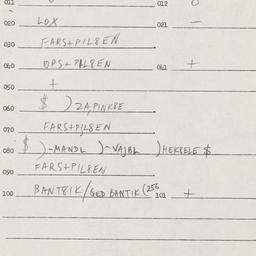 011 012 0
020 LOX 021 —
030 FARS+PILSEN
040 OPS+PILSEN 041 +
050 +
060 $ ) ZAPINKSE
070 FARS+PILSEN
080 $ )-MANDL )-VAJBL )HEKSELE $
090 FARS+PILSEN
100 BANTSIK/GED BANTIK (256 101 +